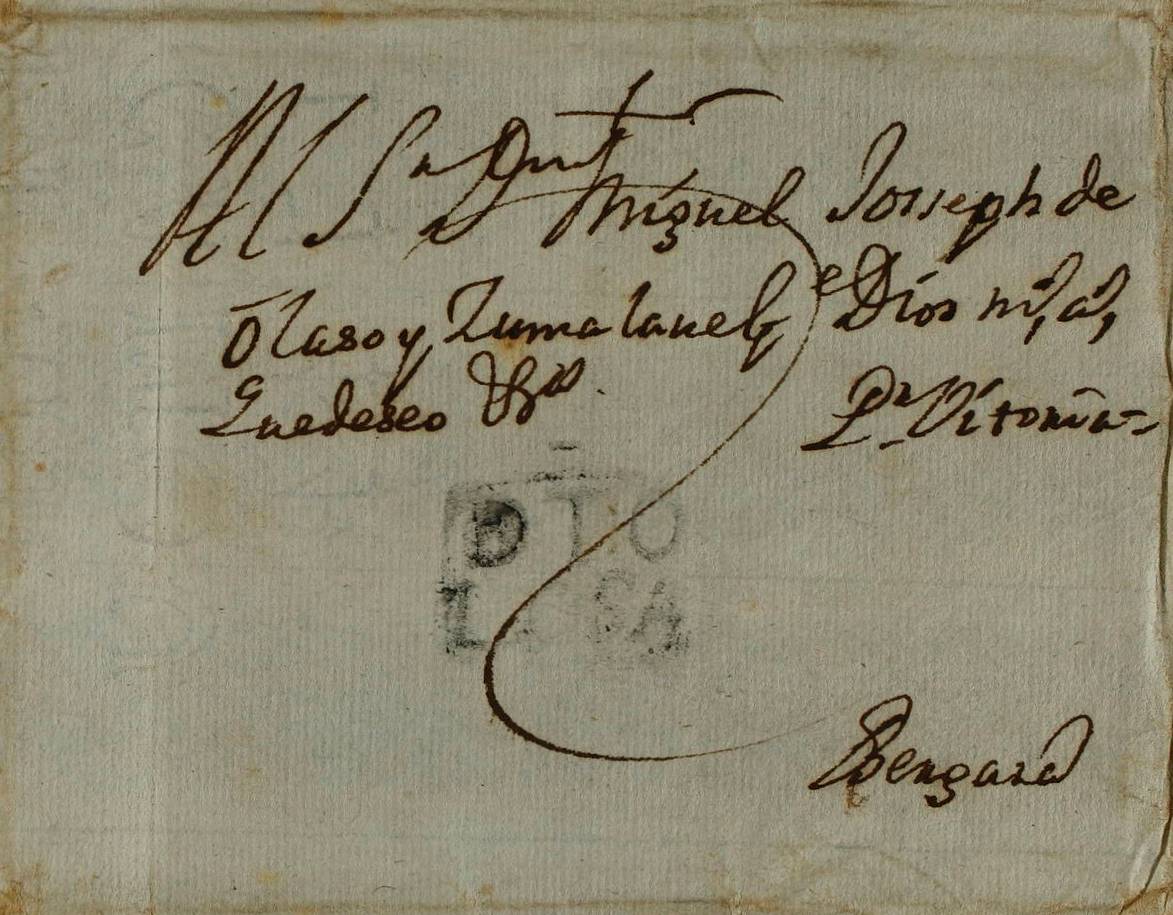 Al Sr Dn
Miguel Josseph de
Olaso y Zumalaue q e Dios m, a,
Quedeseo
Pr Vitoria =
DTO
Bergara